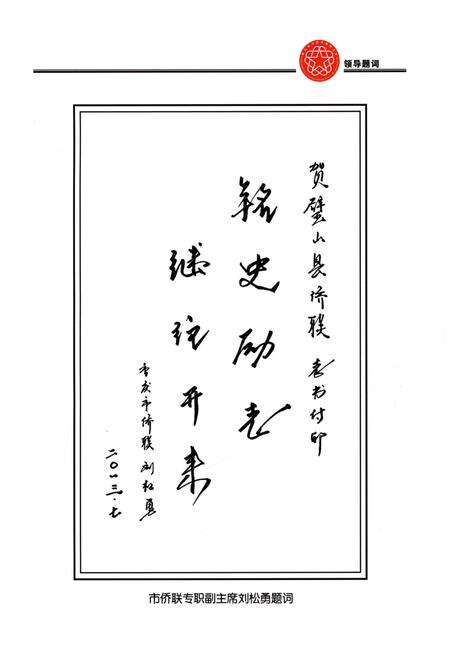 领导题词
贺璧山县侨联志书付印
铭史励志
继往开来
重庆市侨联刘松勇
二〇一三·七
市侨联专职副主席刘松勇题词